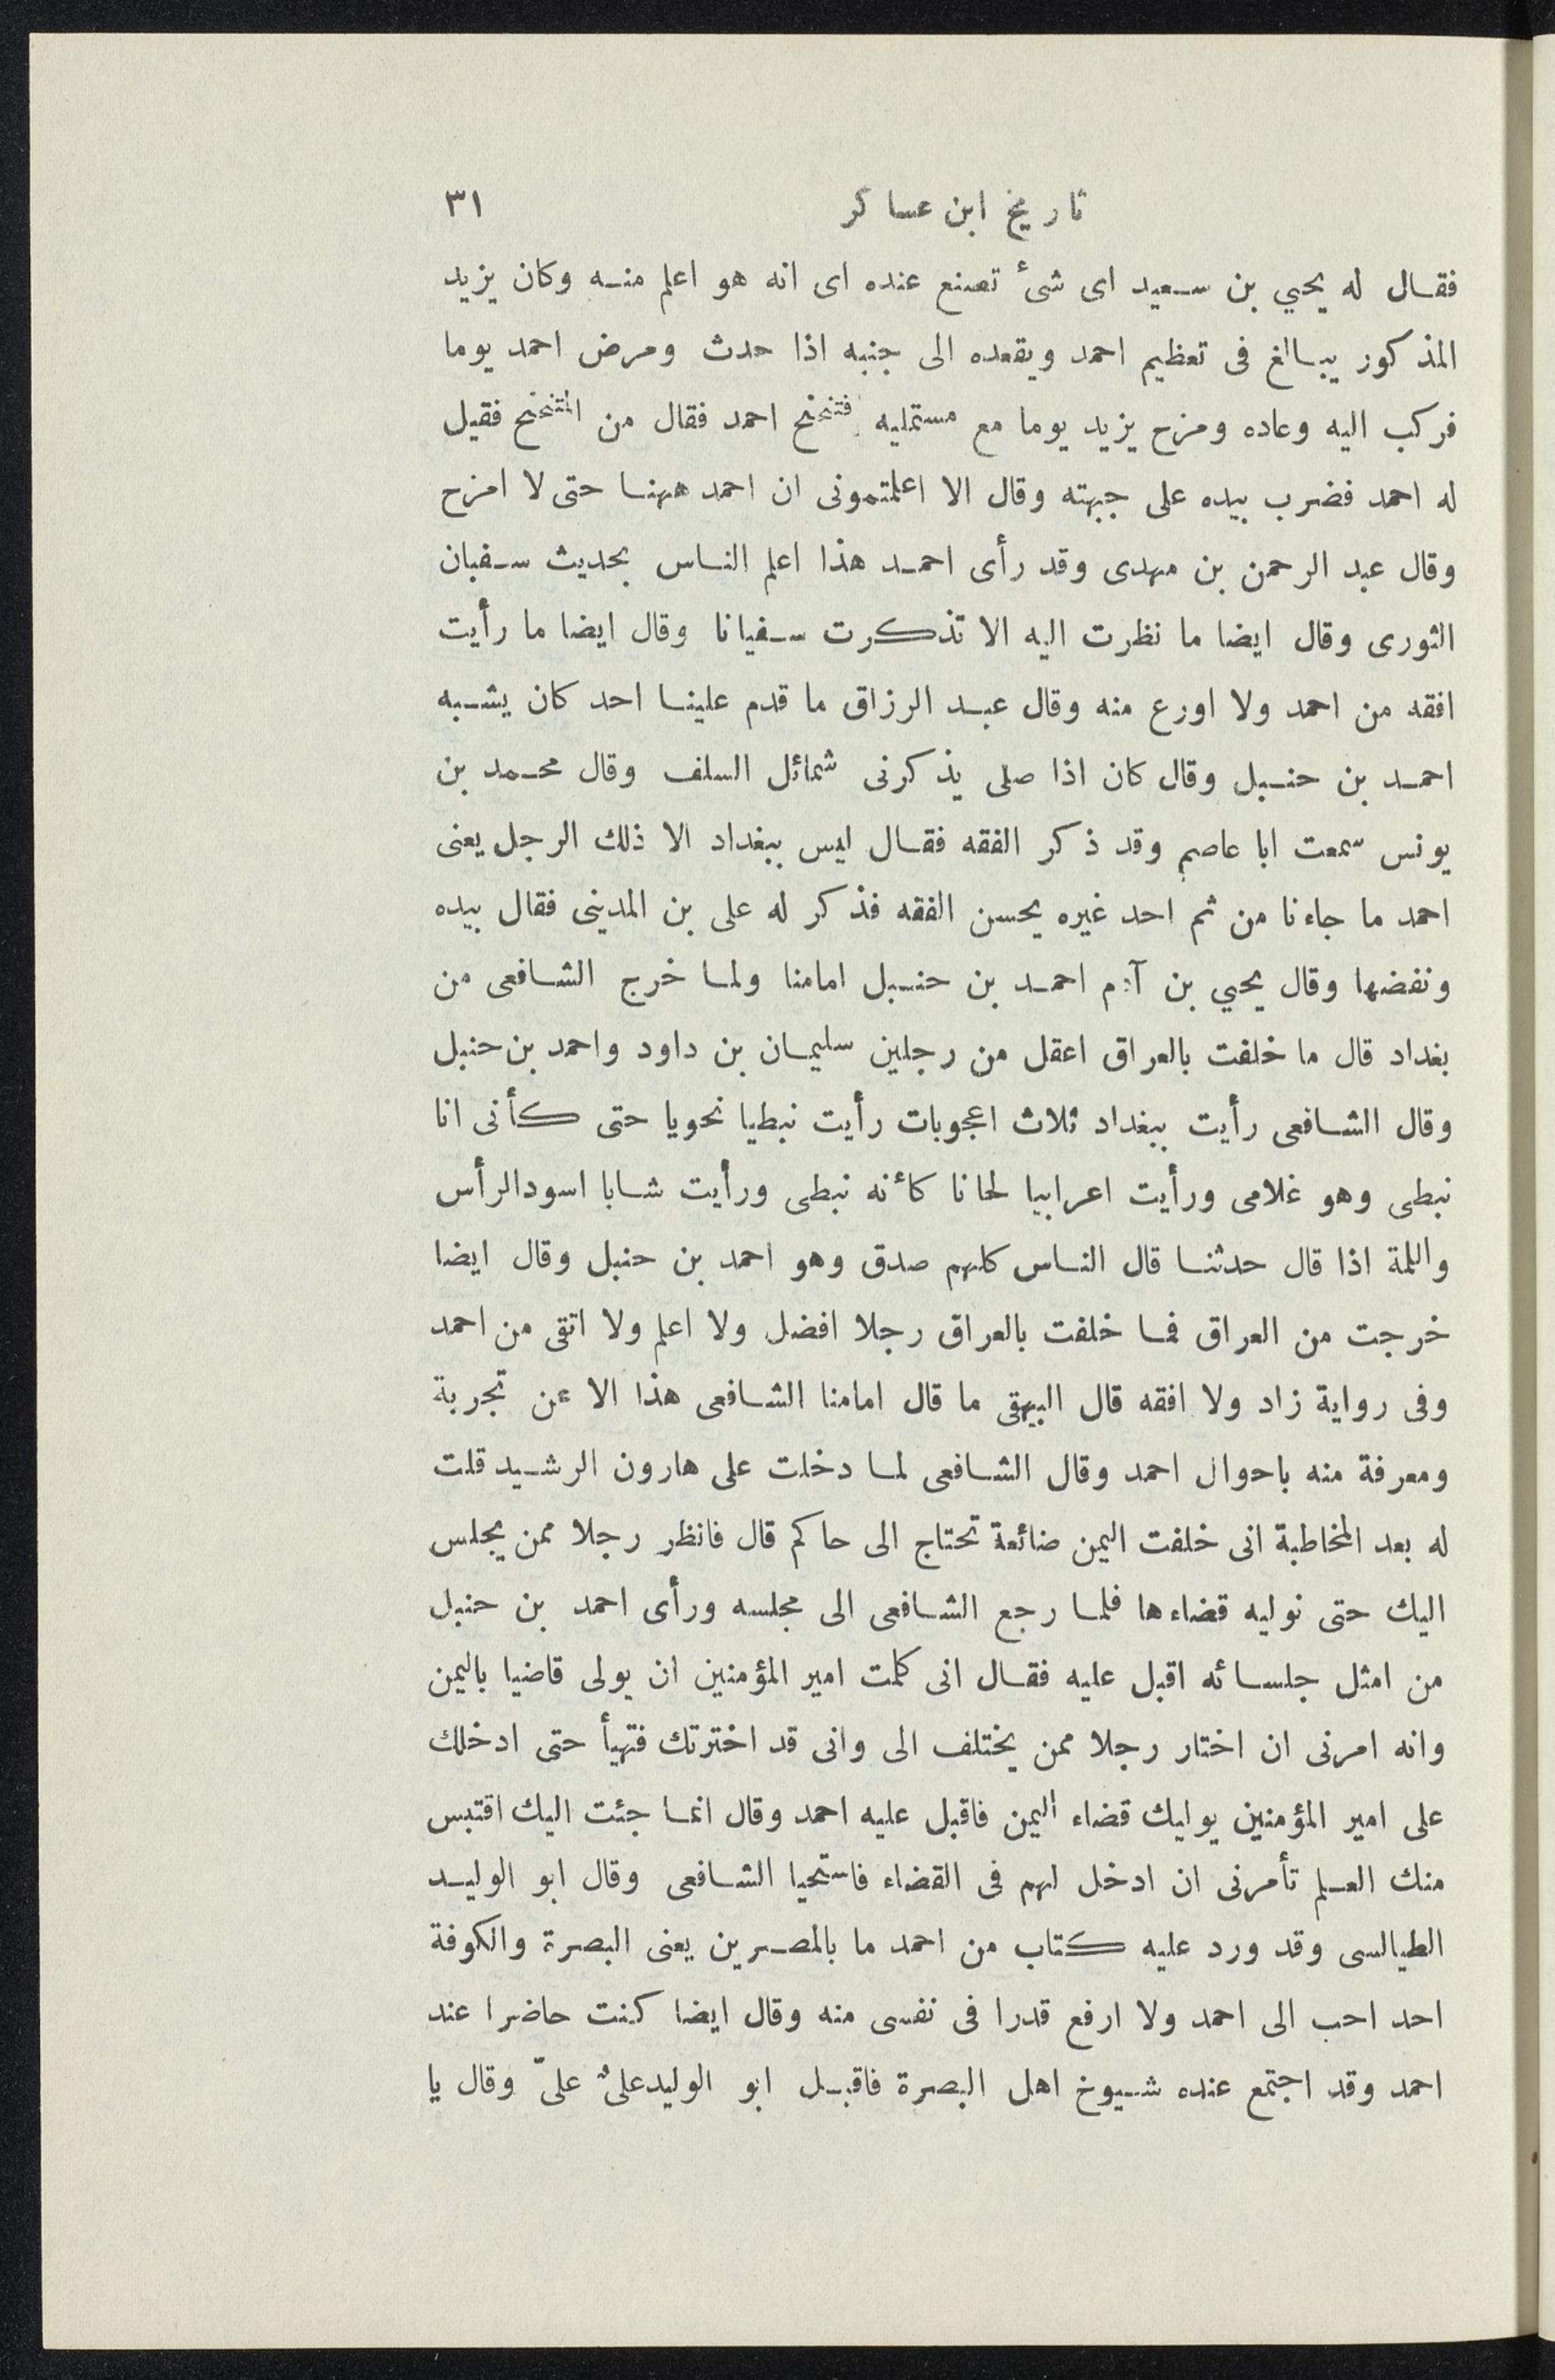 تاريخ ابن عساكر ٣١
فقال له يحيي بن سعيد اى شئ تصنع عنده اى انه هو اعلم منه وكان يزيد
المذكور يبالغ فى تعظيم احمد ويقعده الى جنبه اذا حدث ومرض احمد يوما
فركب اليه وعاده ومزح يزيد يوما مع مستمليه فتنحنح احمد فقال من المتنحنح فقيل
له احمد فضرب بيده على جبهته وقال الا اعلمتمونى ان احمد ههنا حتى لا امزح
وقال عبد الرحمن بن مهدى وقد رأى احمد هذا اعلم الناس بحديث سفيان
الثورى وقال ايضا ما نظرت اليه الا تذكرت سفيانا وقال ايضا ما رأيت
افقه من احمد ولا اورع منه وقال عبد الرزاق ما قدم علينا احد كان يشبه
احمد بن حنبل وقال كان اذا صلى يذكرنى شمائل السلف وقال محمد بن
يونس سمعت ابا عاصم وقد ذكر الفقه فقال ليس ببغداد الا ذلك الرجل يعنى
احمد ما جاءنا من ثم احد غيره يحسن الفقه فذكر له على بن المدينى فقال بيده
ونفضها وقال يحيي بن آدم احمد بن حنبل امامنا ولما خرج الشافعى من
بغداد قال ما خلفت بالعراق اعقل من رجلين سليمان بن داود واحمد بن حنبل
وقال الشافعى رأيت ببغداد ثلاث اعجوبات رأيت نبطيا نحويا حتى كأنى انا
نبطى وهو غلامى ورأيت اعرابيا لحانا كأنه نبطى ورأيت شابا اسود الرأس
واللمة اذا قال حدثنا قال الناس كلهم صدق وهو احمد بن حنبل وقال ايضا
خرجت من العراق فما خلفت بالعراق رجلا افضل ولا اعلم ولا اتقى من احمد
وفى رواية زاد ولا افقه قال البيهقى ما قال امامنا الشافعى هذا الا عن تجربة
ومعرفة منه باحوال احمد وقال الشافعى لما دخلت على هارون الرشيد قلت
له بعد المخاطبة انى خلفت اليمن ضائعة تحتاج الى حاكم قال فانظر رجلا ممن يجلس
اليك حتى نوليه قضاءها فلما رجع الشافعى الى مجلسه ورأى احمد بن حنبل
من امثل جلسائه اقبل عليه فقال انى كلمت امير المؤمنين ان يولى قاضيا باليمن
وانه امرنى ان اختار رجلا ممن يختلف الى وانى قد اخترتك فتهيأ حتى ادخلك
على امير المؤمنين يوليك قضاء اليمن فاقبل عليه احمد وقال انما جئت اليك اقتبس
منك العلم تأمرنى ان ادخل لهم فى القضاء فاستحيا الشافعى وقال ابو الوليد
الطيالسى وقد ورد عليه كتاب من احمد ما بالمصرين يعنى البصرة والكوفة
احد احب الى احمد ولا ارفع قدرا فى نفسى منه وقال ايضا كنت حاضرا عند
احمد وقد اجتمع عنده شيوخ اهل البصرة فاقبل ابو الوليد علىٌ علىّ وقال يا